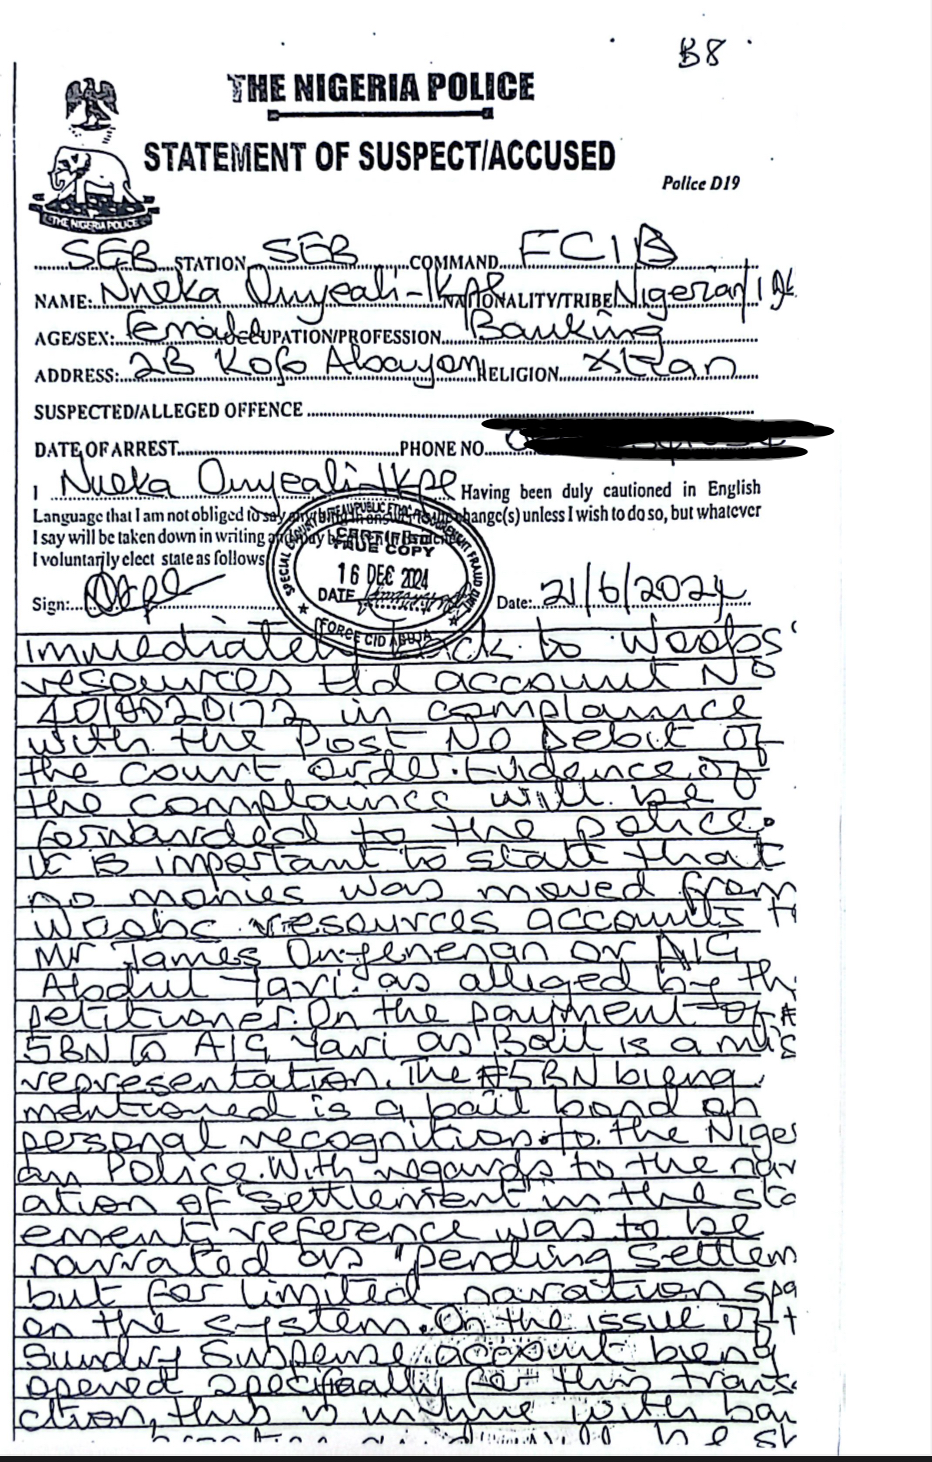 B8
THE NIGERIA POLICE
STATEMENT OF SUSPECT/ACCUSED
Police D19
THE NIGERIA POLICE
SEB STATION SEB COMMAND FCIB
NAME: Nneka Onyeali-Ikpe NATIONALITY/TRIBE Nigerian/
AGE/SEX: Female OCCUPATION/PROFESSION Banking
ADDRESS: 2B Kofo Abayomi RELIGION Xtian
SUSPECTED/ALLEGED OFFENCE
DATE OF ARREST PHONE NO.
I Nneka Onyeali-Ikpe Having been duly cautioned in English
Language that I am not obliged to say change(s) unless I wish to do so, but whatever
I say will be taken down in writing
I voluntarily elect state as follows
CERTIFIED
TRUE COPY
16 DEC 2024
DATE
FORCE CID ABUJA
Sign: Date: 21/6/2024
immediately back to Woobs'
resources Ltd account No
4018020172 in complaince
with the Post No Debit of
the court order. Evidence of
the complaince will be
forwarded to the police.
It is important to state that
no monies was moved from
Woobc resources accounts t
Mr James Onyenenan or AIG
Abdul Yari as alleged by th
petitioner. On the payment of #
5BN to AIG Yari as Bail is a mis
representation. The #5BN bieng
mentioned is a bail bond on
personal recognition to the Niger
an Police. With regards to the narr
ation of settlement in the sta
ement, reference was to be
narrated as "pending settlem
but for limited naration spa
on the system. On the issue of t
Sundry Suspense account bieng
opened specifically for this transa
ction, this is inline with ban